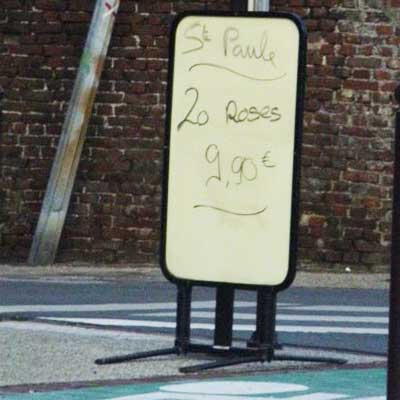 Ste Paule
20 Roses
9,90 €